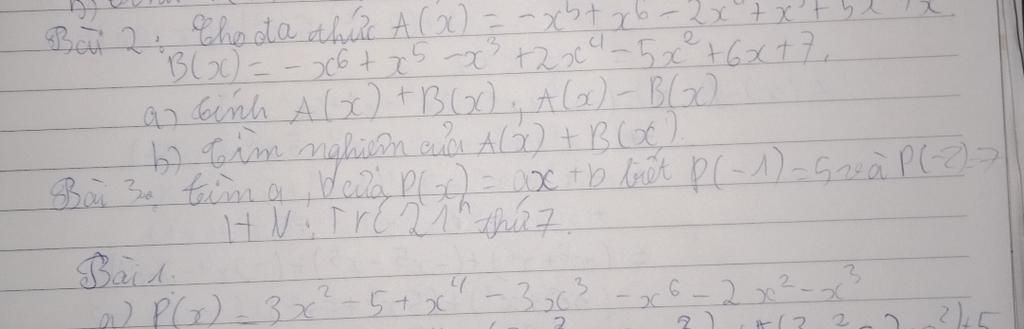 Bài 2: Cho đa thức A(x) = -x⁵ + x⁶ - 2x⁴ + x³ + 5x²
B(x) = -x⁶ + x⁵ - x³ + 2x⁴ - 5x² + 6x + 7.
a) tính A(x) + B(x), A(x) - B(x)
b) tìm nghiệm của A(x) + B(x).
Bài 3. tìm a, b của P(x) = ax + b biết P(-1) = 5 và P(-2) =
HN: Trc 21h thứ 7.
Bài 1.
a) P(x) = 3x² - 5 + x⁴ - 3x³ - x⁶ - 2x² - x³